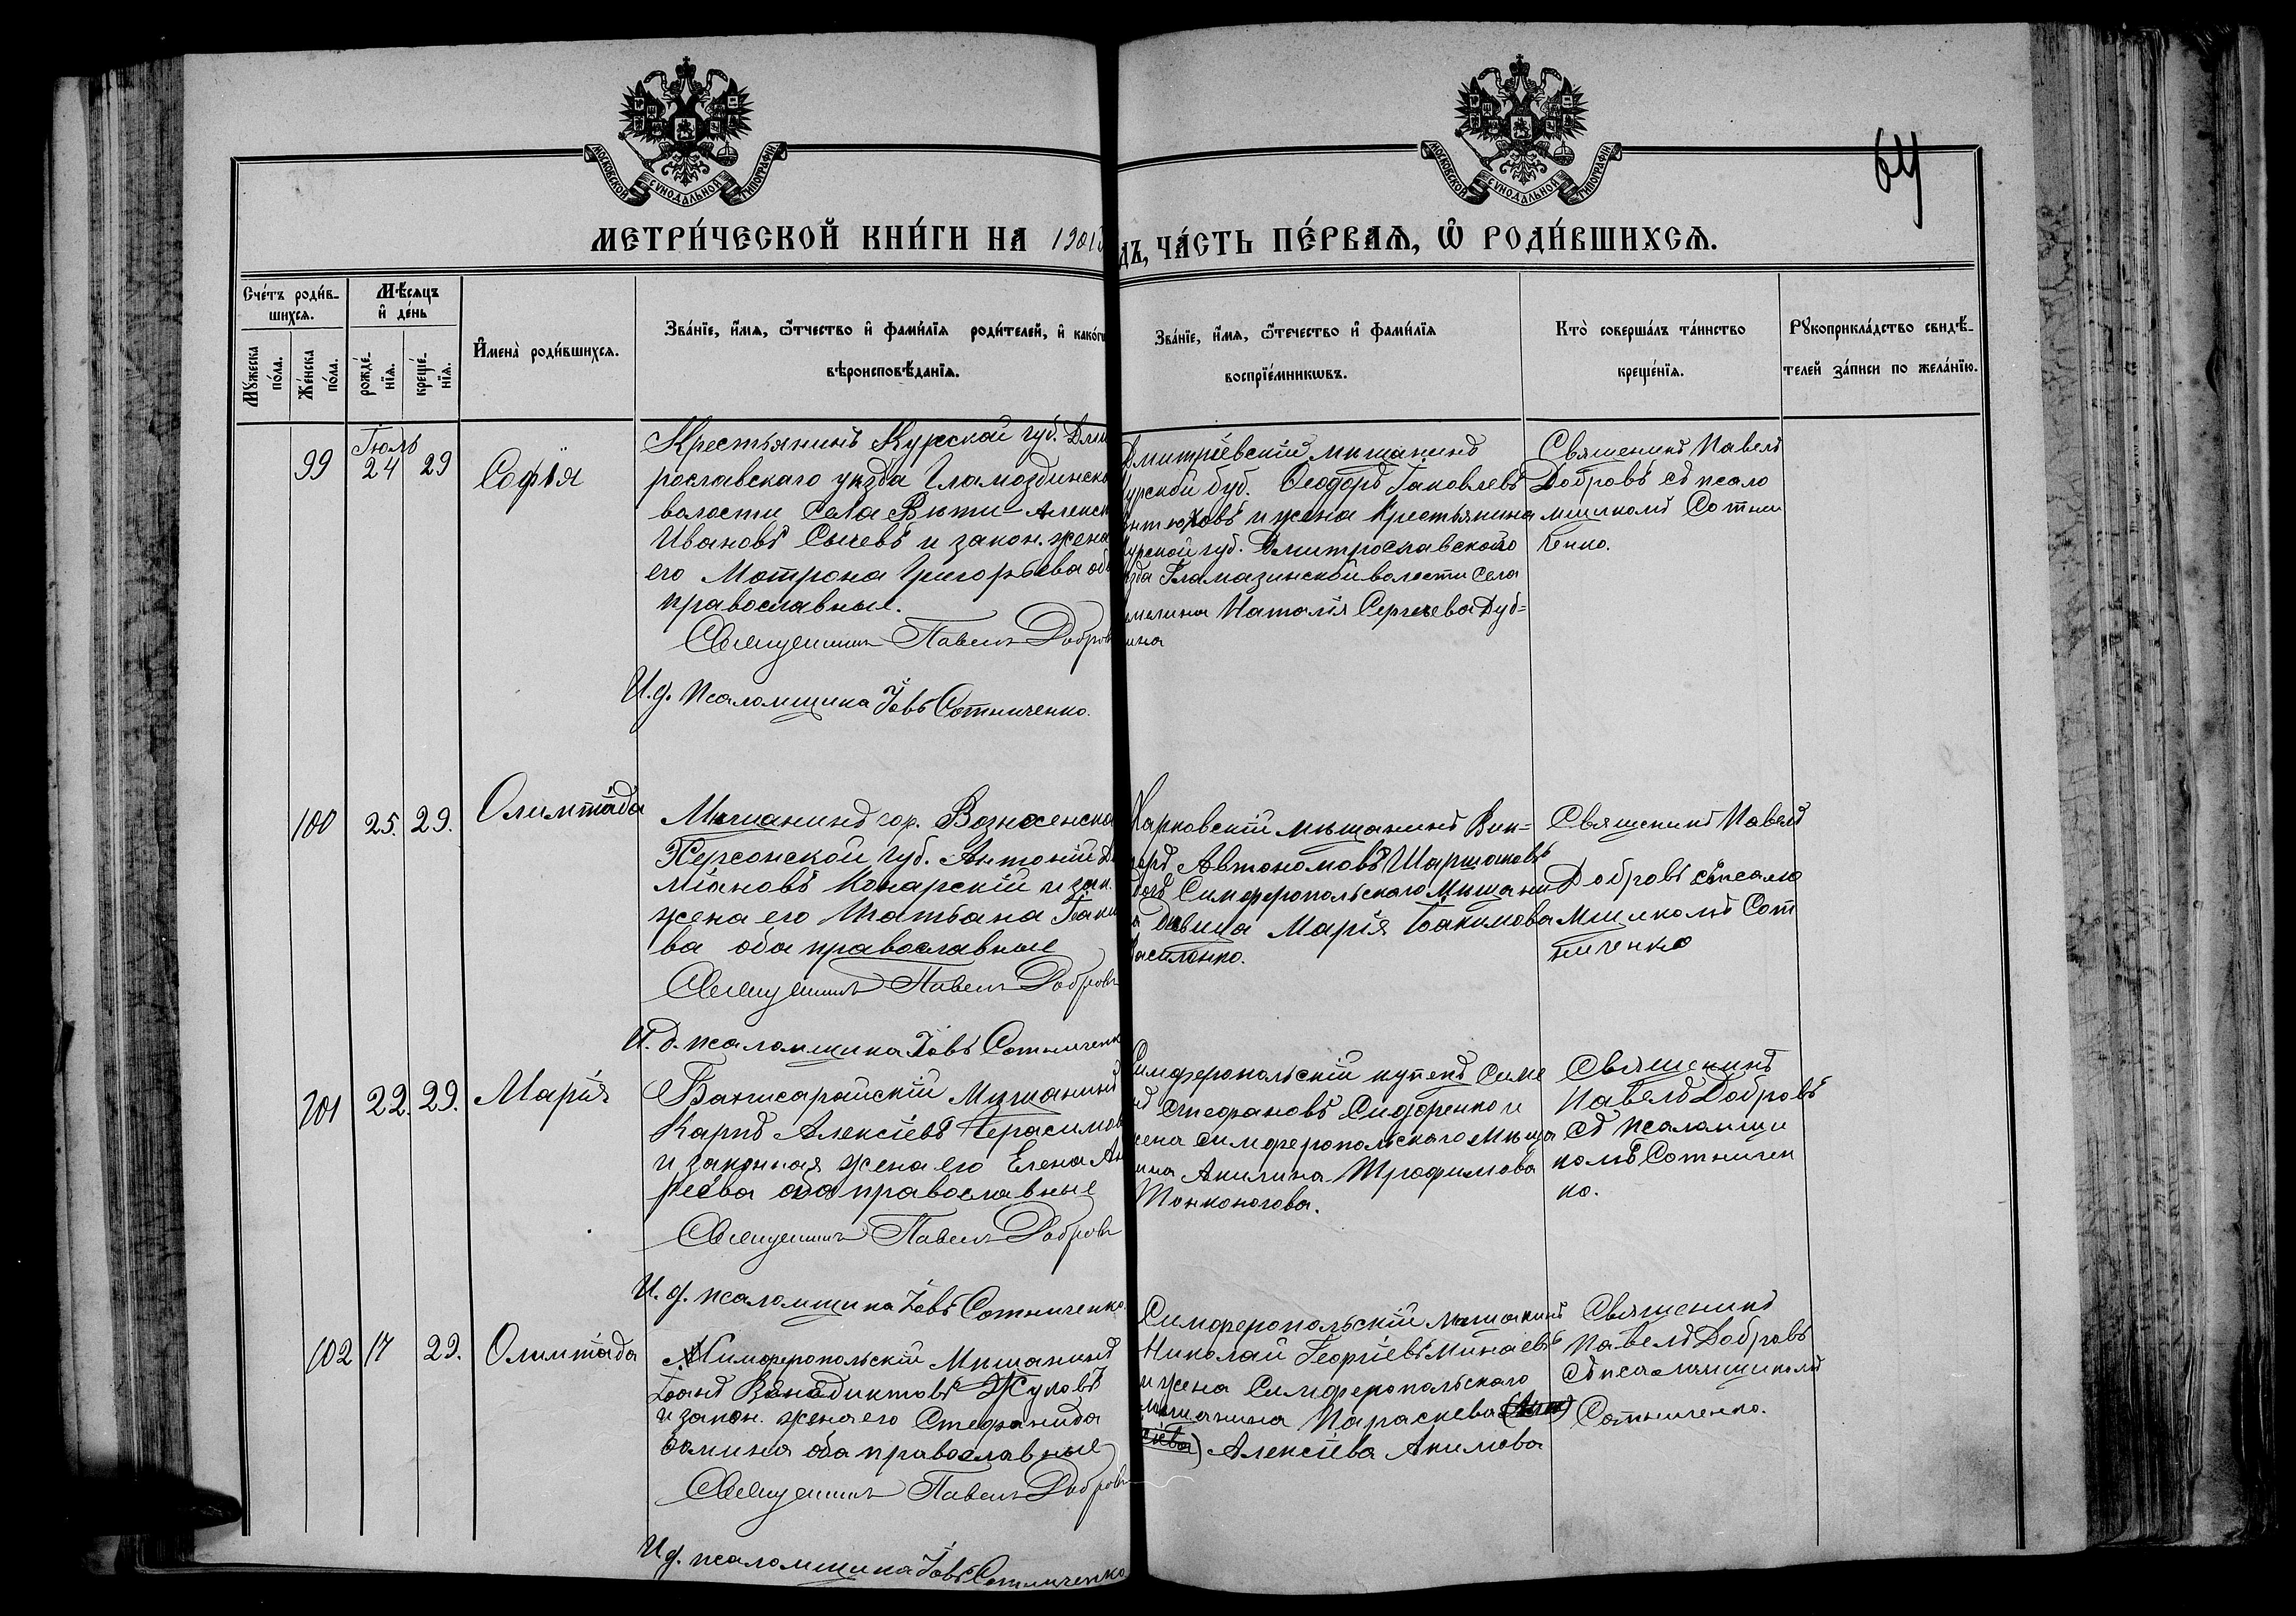 МОСКОВСКОЙ СѴНОДАЛЬНОЙ ТИПОГРАФІИ
МОСКОВСКОЙ СѴНОДАЛЬНОЙ ТИПОГРАФІИ
64
МЕТРИ́ЧЕСКОЙ КНИ́ГИ НА 1901
ДЪ, ЧА́СТЬ ПЕ́РВАЯ, Ѡ҆ РОДИ́ВШИХСЯ.
Сче́тъ роди́в-
шихся.
Мѣ́сяцъ
и҆ де́нь
Мꙋ́жеска
по́ла.
Же́нска
по́ла.
рожде́-
нїя.
креще́-
нїя.
И҆мена̀ роди́вшихся.
Зва́нїе, и҆́мя, ѻ҆́тчество и҆ фами́лїя роди́телей, и҆ како́гѡ
вѣроисповѣ́данїя.
Зва́нїе, и҆́мя, ѻ҆те́чество и҆ фами́лїя
воспрїе́мникѡвъ.
Кто̀ соверша́лъ та́инство
креще́нїя.
Рꙋкоприкла́дство свидѣ́-
телей за́писи по жела́нїю.
99
Іюль
24 29
Софія
Крестьянинъ Курской губ. Дми
рославскаго уѣзда Гламоздинско
волости Села Алекс
Ивановъ Сычевъ и закон. жена
его Мотрона Григорьева об
православные.
Священникъ Павелъ Добровъ
И.д. Псаломщика Іовъ Сотниченко.
Дмитріевскій мѣщанинъ
Курской губ. Ѳеодоръ Іаковлевъ
и жена Крестьянина
Курской губ. Дмитрославскаго
ѣзда Гламазинской волости Села
Наталія Сергѣева Дуб=
ина
Священикъ Павелъ
Добровъ съ псало
мщикомъ Сотни
ченко.
100 25. 29.
Олимпіада
Мѣщанинъ гор. Вознесенска
Херсонской Губ. Антоній Да
міановъ Комарскій и зак.
жена его Татьана Іоаки
ва оба православные
Священникъ Павелъ Добровъ
И. д. псаломщика Іовъ Сотниченк
Харковскій мѣщанинъ Вик=
торъ Автономовъ Шаршаковъ
дочь Симферопольскаго Мѣщани
а дѣвица Марія Іоакимова
Василенко.
Священикъ Павелъ
Добровъ съ псало
мщикомъ Сот
ниченко
101 22. 29. Марія
Бахчисарайскій Мѣщанинъ
Карпъ Алексіевъ Герасимов
и законная жена его Елена Ан
реева оба православные
Священникъ Павелъ Добровъ
И. д. псаломщика Іовъ Сотниченко.
Симферопольскій купецъ Симе
нъ Стефановъ Сидоренко и
жена симферопольскаго Мѣща
нина Акилина Трофимова
Тонконогова.
Священикъ
Павелъ Добровъ
съ псаломщи
комъ Сотничен
ко.
102 17 29. Олимпіада
Симферопольскій Мѣщанинъ
Іоанъ Венедиктовъ Жуковъ
и закон. жена его Стефанида
Ѳомина оба православные
Священникъ Павелъ Добровъ
И д. псаломщика Іовъ Сотниченко
Симферопольскій Мѣщанинъ
Николай Георгіевъ Минаевъ
и жена Симферопольскаго
мѣщанина Параскева (Алек
сіева) Алексіева Акимова
Священикъ
Павелъ Добровъ
съ псаломщикомъ
Сотниченко.